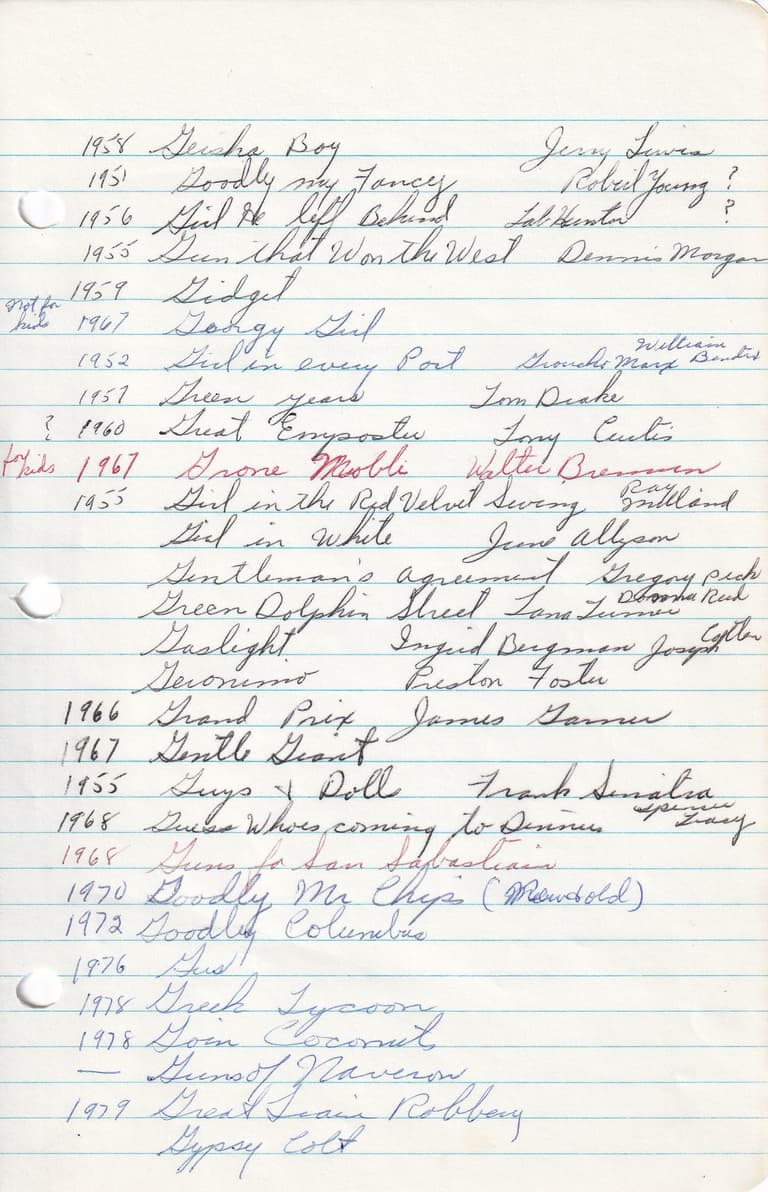 1958 Geisha Boy Jerry Lewis
1951 Goodby my Fancy Robert Young ?
1956 Girl He left Behind Tab Hunter ?
1955 Gun that Won the West Dennis Morgan
1959 Gidget
Not for kids 1967 Georgy Girl
1952 Girl in every Port Groucho Marx William Bendix
1957 Green years Tom Drake
? 1960 Great Emposter Tony Curtis
for kids 1967 Walter Brennen
1955 Girl in the Red Velvet Swing Ray Milland
Girl in White June Allyson
Gentleman's agreement Gregory Peck
Green Dolphin Street Lana Turner Donna Reed
Gaslight Ingrid Bergman Joseph
Geronimo Preston Foster
1966 Grand Prix James Garner
1967 Gentle Giant
1955 Guys & Dolls Frank Sinatra
1968 Guess Whoes coming to Dinner Spencer Tracy
1968 Guns fo San Sabastiain
1970 Goodby Mr Chips (New & old)
1972 Goodby Columbus
1976 Gus
1978 Greek Tycoon
1978 Goin Coconuts
— Guns of Naveron
1979 Great Train Robbery
Gypsy Colt